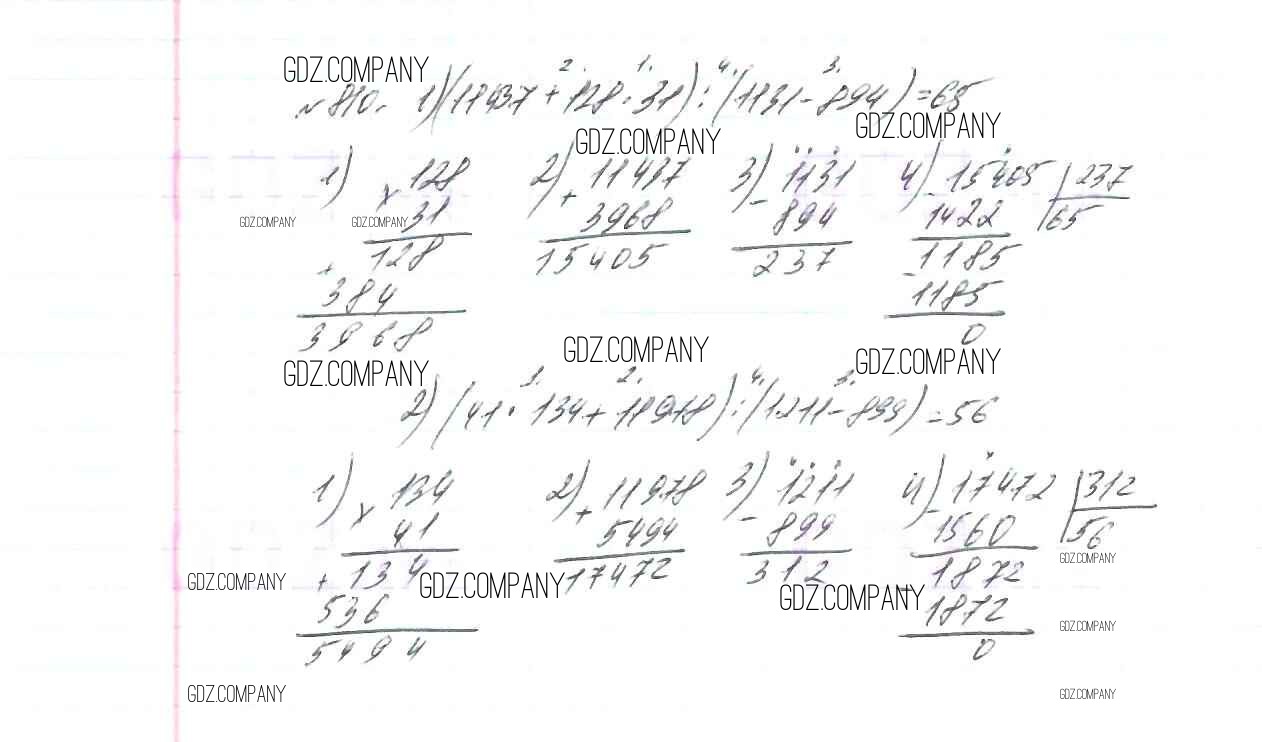 GDZ.COMPANY
2. 1. 4. 3.
№ 810. 1) (11437 + 128 · 31) : (1131 - 894) = 65
GDZ.COMPANY GDZ.COMPANY
1) × 128 2) + 11437 3) - 1131 4) - 15405 | 237
GDZ.COMPANY GDZ.COMPANY 31 3968 894 1422 65
+ 128 15405 237 - 1185
384 1185
3968 0
GDZ.COMPANY GDZ.COMPANY GDZ.COMPANY
1. 2. 4. 3.
2) (41 · 134 + 11978) : (1211 - 899) = 56
1) × 134 2) + 11978 3) - 1211 4) - 17472 | 312
41 5494 899 1560 56
GDZ.COMPANY
GDZ.COMPANY + 134 GDZ.COMPANY 17472 312 - 1872
536 GDZ.COMPANY 1872 GDZ.COMPANY
5494 0
GDZ.COMPANY GDZ.COMPANY